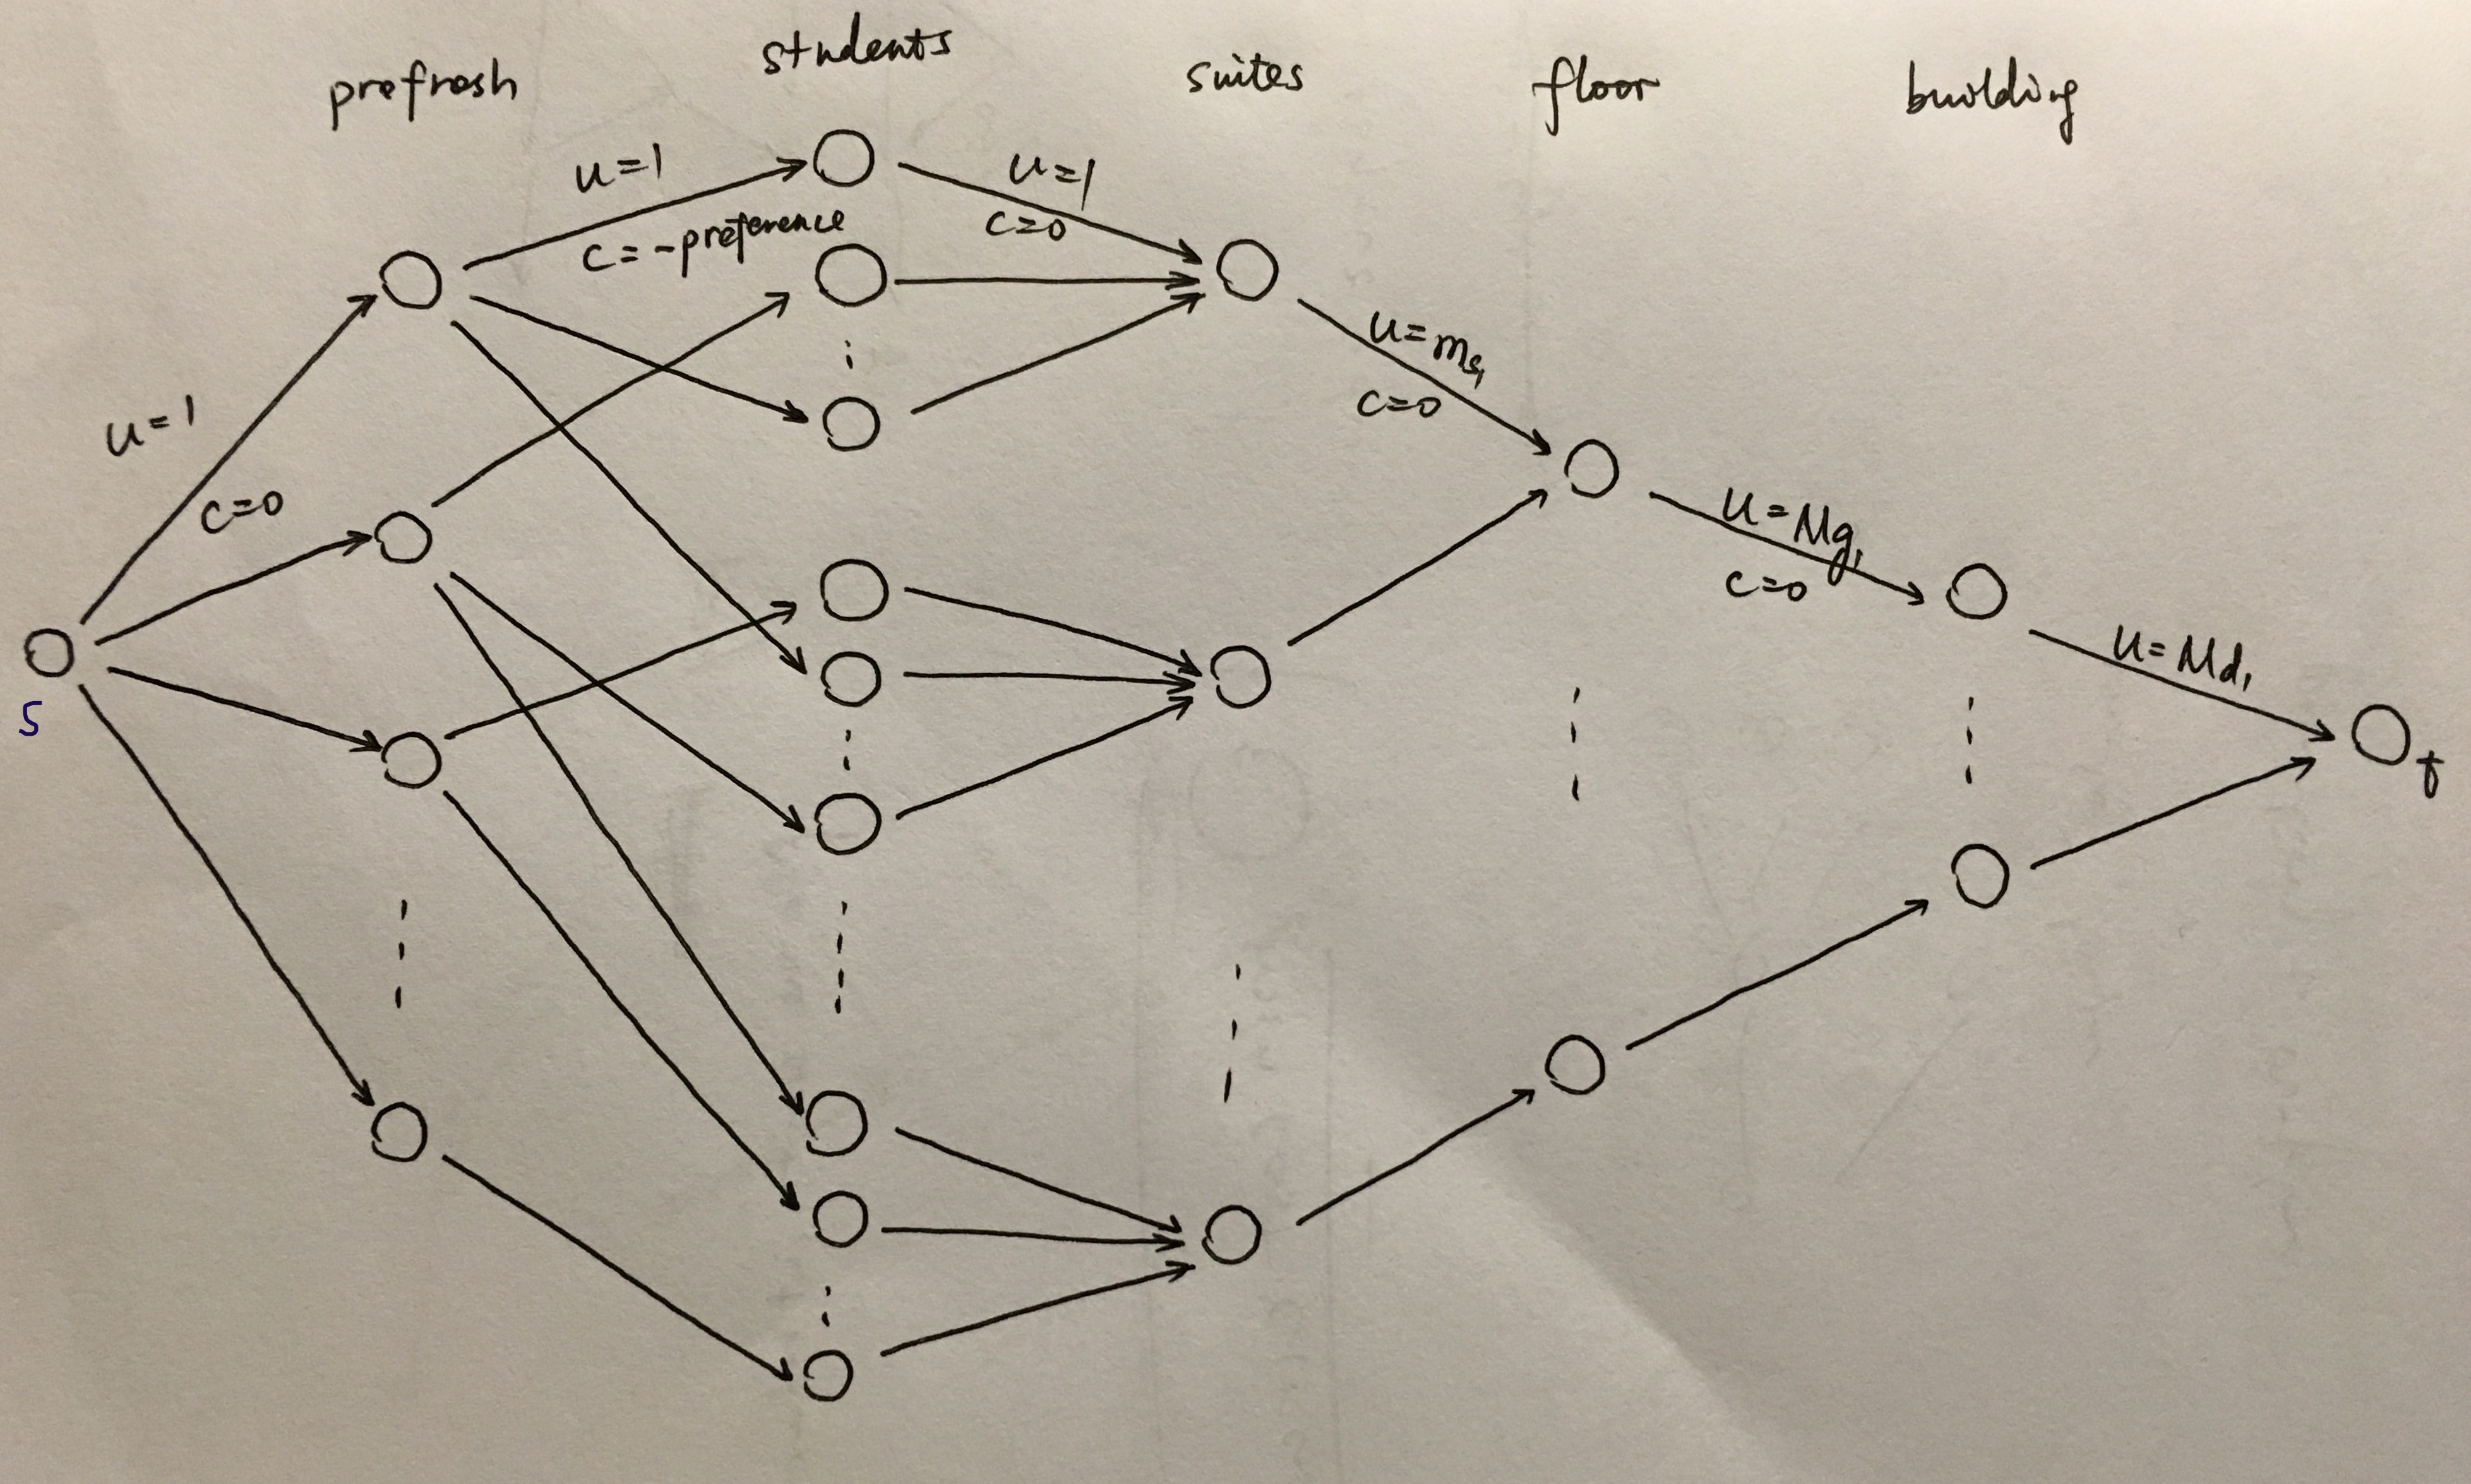 prefrosh
students
suites
floor
building
u=1
c=-preference
u=1
c=0
u=1
c=0
u=ms₁
c=0
u=Mg₁
c=0
u=Md₁
S
t